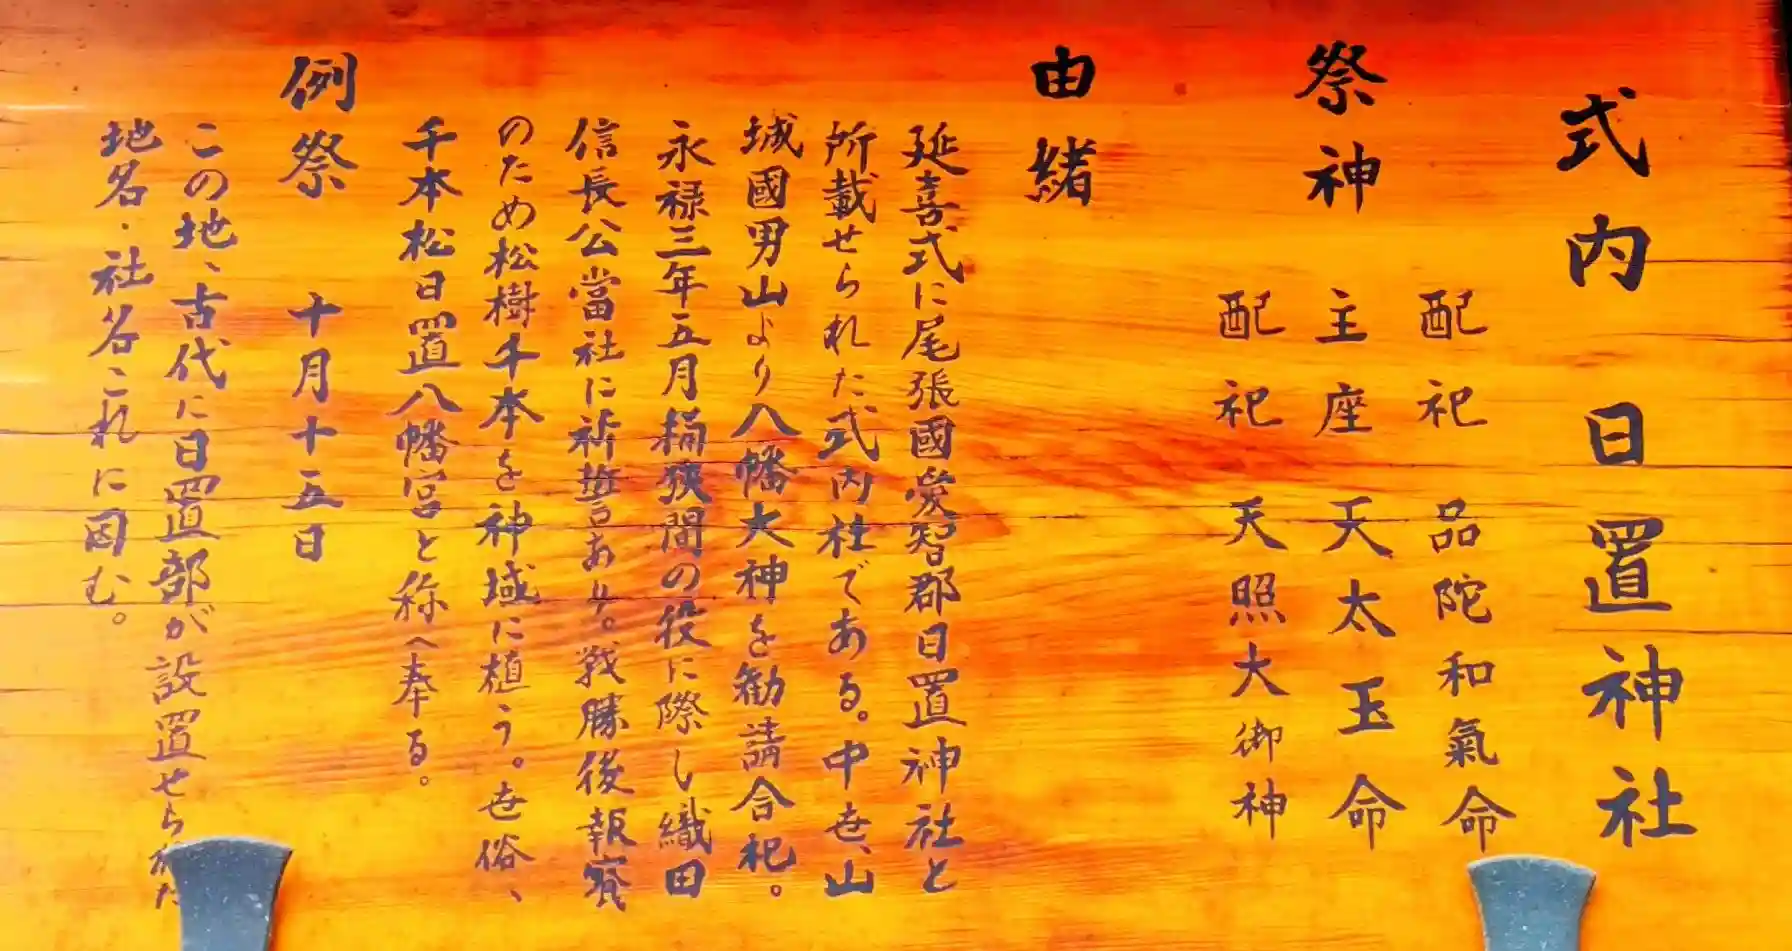 式内日置神社
祭神
配祀 品陀和氣命
主座 天太玉命
配祀 天照大御神
由緒
延喜式に尾張國愛智郡日置神社と
所載せられた式内社である。中世、山
城國男山より八幡大神を勧請合祀。
永禄三年五月桶狭間の役に際し織田
信長公當社に祈誓あり。戦勝後報賽
のため松樹千本を神域に植う。世俗、
千本松日置八幡宮と称へ奉る。
例祭 十月十五日
この地、古代に日置部が設置せられた
地名・社名これに因む。